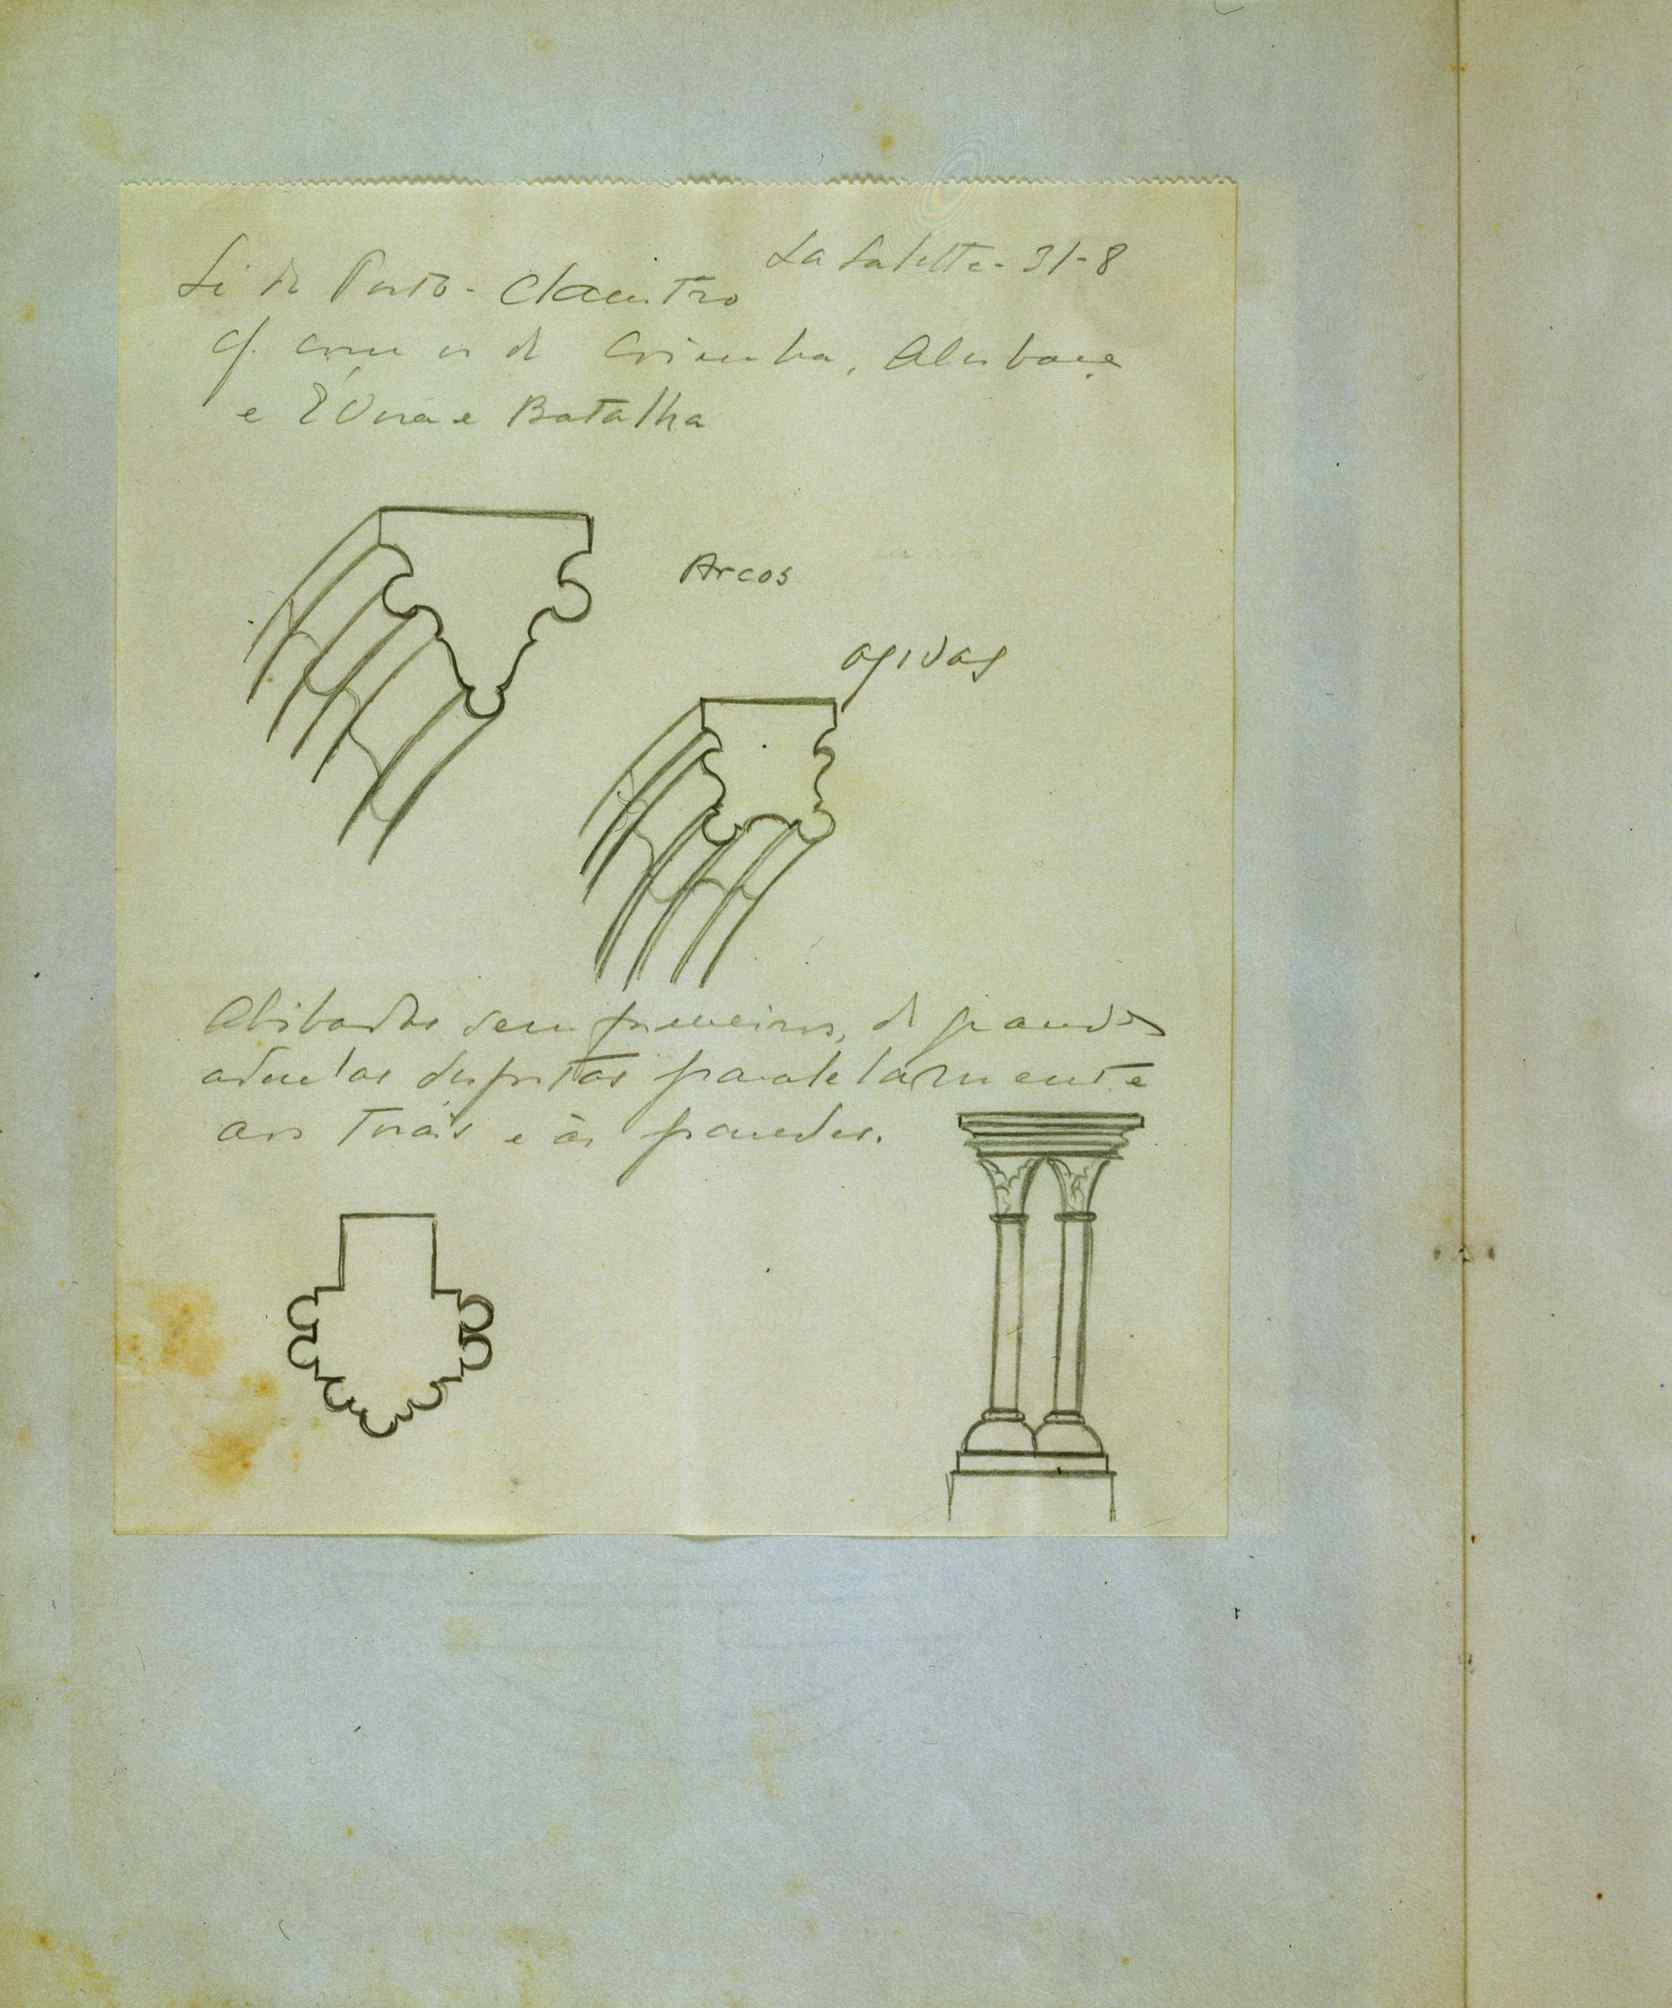 La Salette - 31-8
Sé do Porto - Claustro
cf. com os de Coimbra, Alcobaça
e Évora e Batalha
Arcos
ogivas
Abóbadas sem, de grandes
aduelas dispostas paralelamente
aos torais e às paredes.